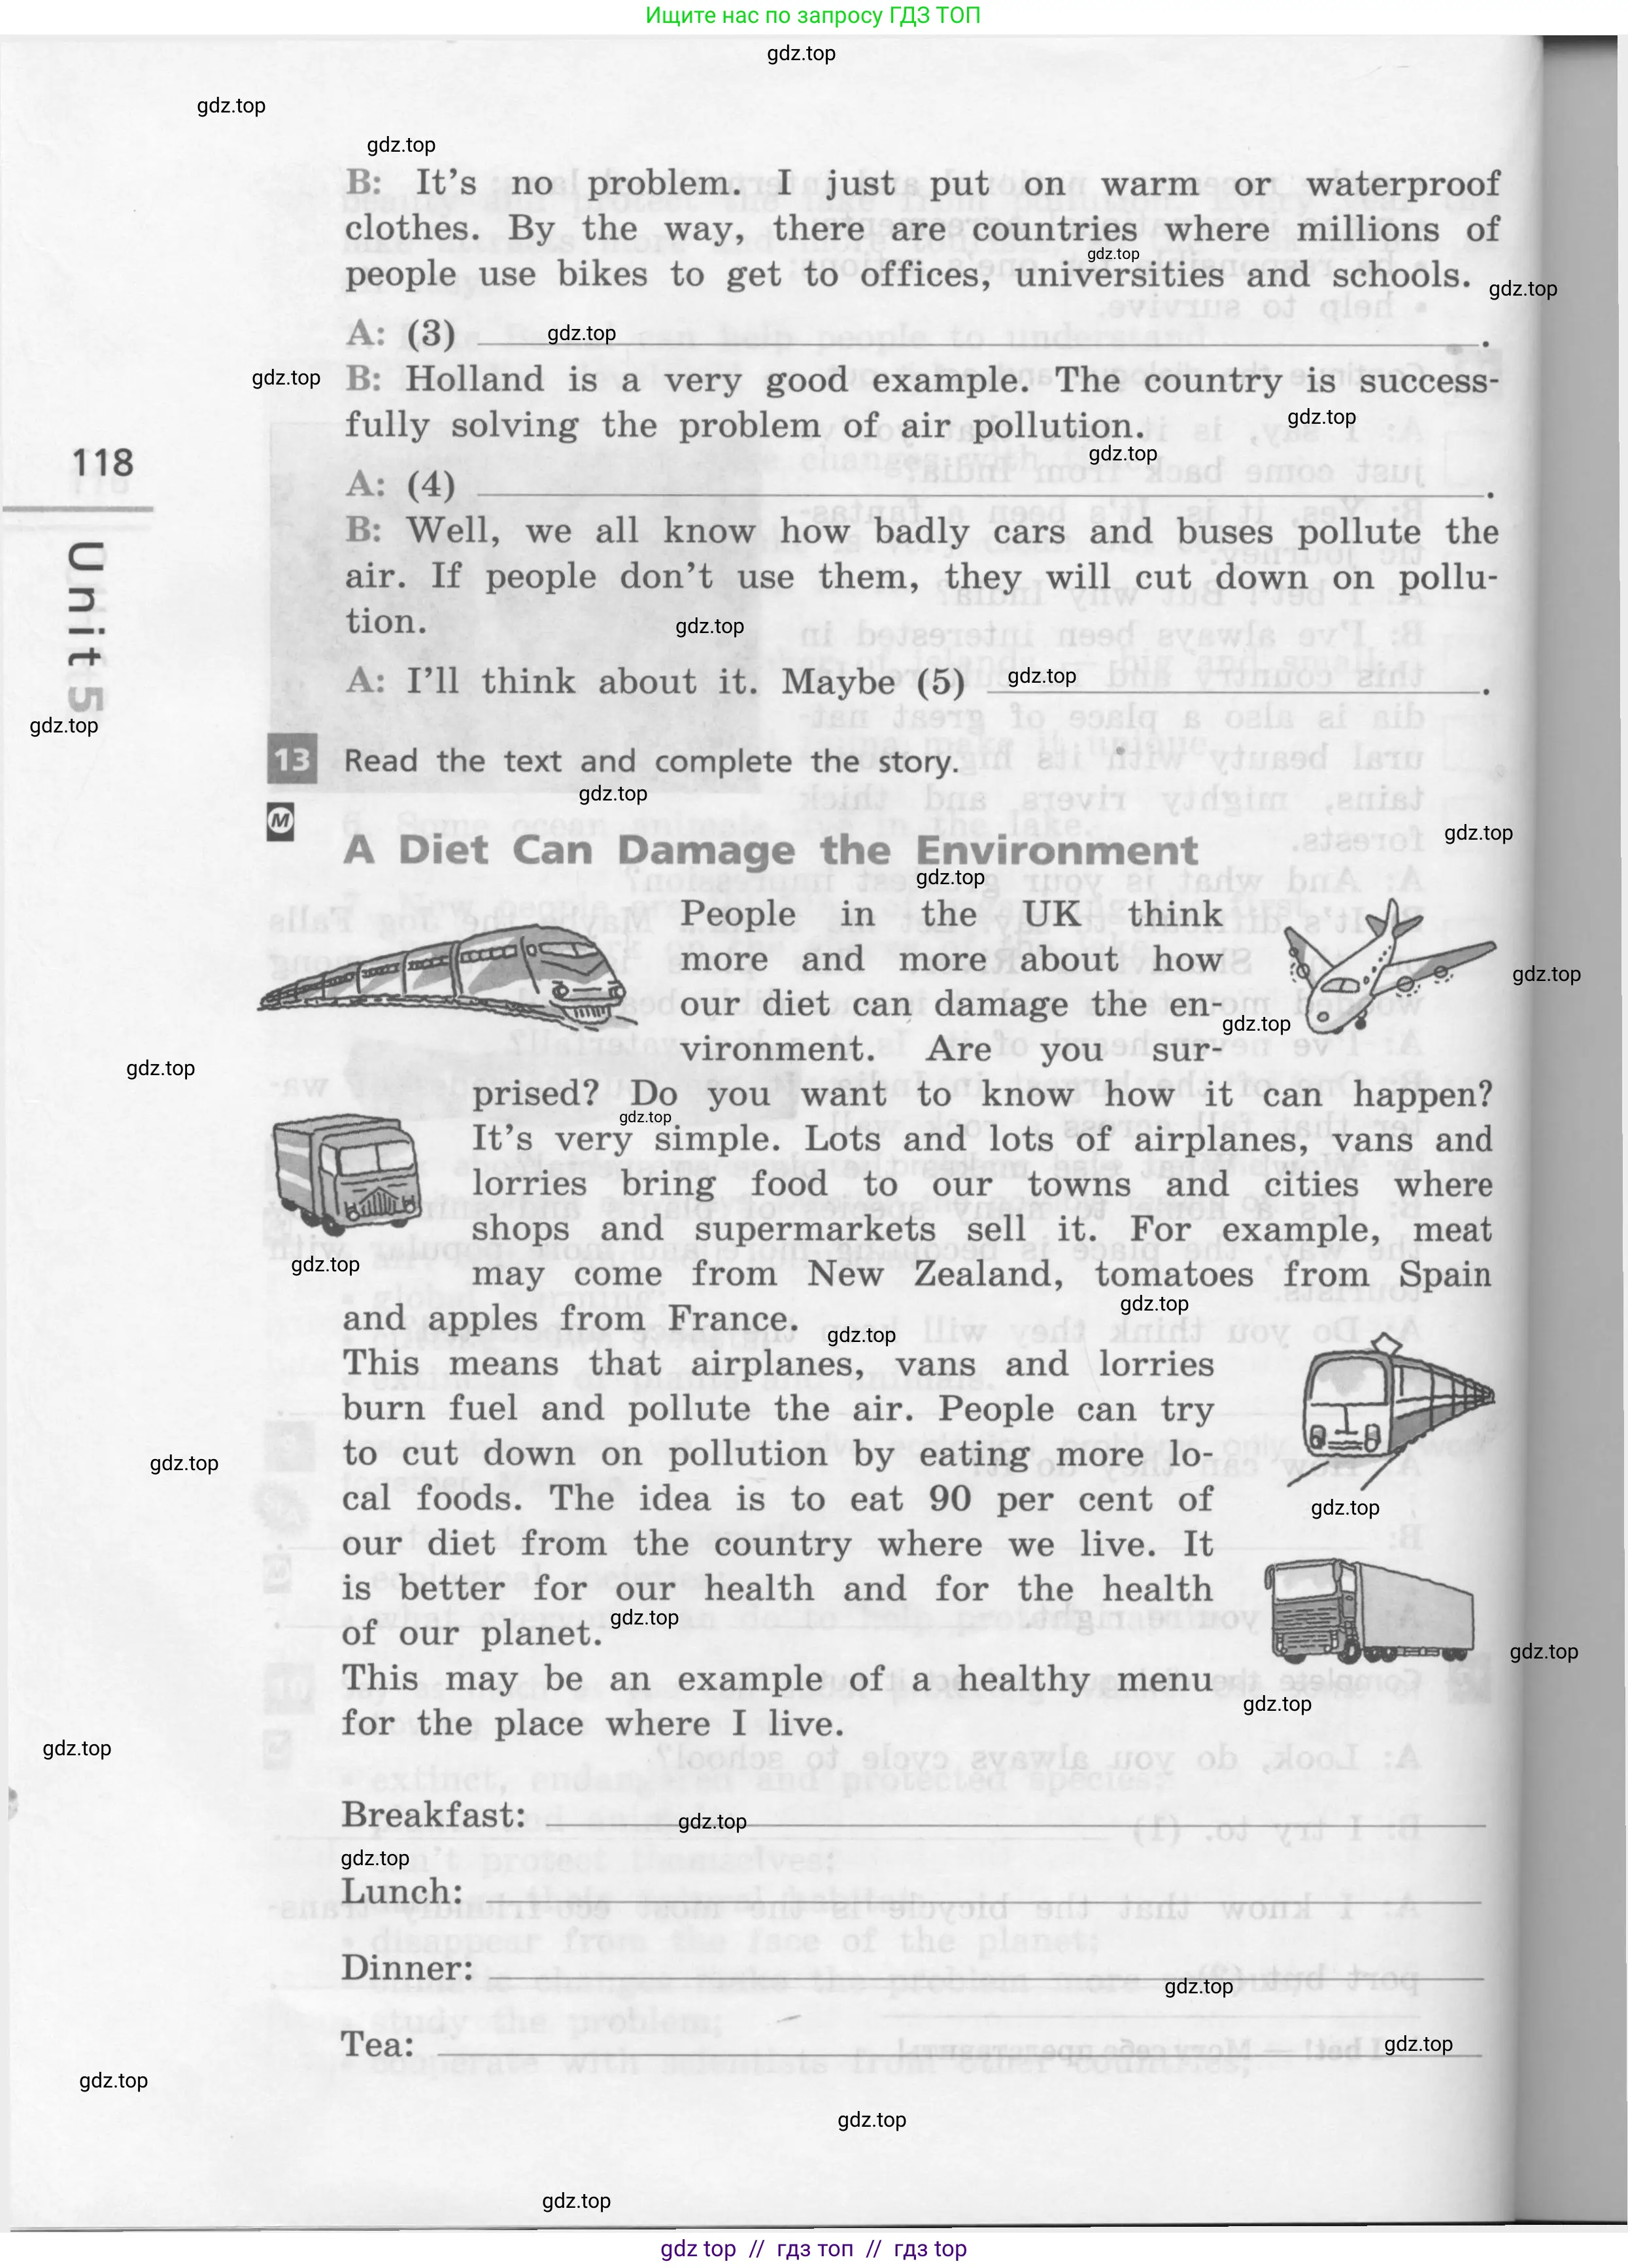 Ищите нас по запросу ГДЗ ТОП
gdz.top
gdz.top
gdz.top
B: It's no problem. I just put on warm or waterproof
clothes. By the way, there are countries where millions of
gdz.top
people use bikes to get to offices, universities and schools.
gdz.top
A: (3) gdz.top .
gdz.top
B: Holland is a very good example. The country is success-
gdz.top
fully solving the problem of air pollution.
gdz.top
118
A: (4) .
B: Well, we all know how badly cars and buses pollute the
air. If people don't use them, they will cut down on pollu-
tion.
gdz.top
Unit 5
A: I'll think about it. Maybe (5) gdz.top .
gdz.top
13 Read the text and complete the story.
gdz.top
M
gdz.top
A Diet Can Damage the Environment
gdz.top
People in the UK think
more and more about how
gdz.top
our diet can damage the en-
gdz.top
vironment. Are you sur-
gdz.top
prised? Do you want to know how it can happen?
gdz.top
It's very simple. Lots and lots of airplanes, vans and
lorries bring food to our towns and cities where
shops and supermarkets sell it. For example, meat
gdz.top
may come from New Zealand, tomatoes from Spain
gdz.top
and apples from France.
gdz.top
This means that airplanes, vans and lorries
burn fuel and pollute the air. People can try
to cut down on pollution by eating more lo-
gdz.top
cal foods. The idea is to eat 90 per cent of
gdz.top
our diet from the country where we live. It
is better for our health and for the health
gdz.top
of our planet.
gdz.top
This may be an example of a healthy menu
gdz.top
for the place where I live.
gdz.top
Breakfast: gdz.top
gdz.top
Lunch:
Dinner:
gdz.top
Tea:
gdz.top
gdz.top
gdz.top
gdz.top
gdz top // гдз топ // гдз top